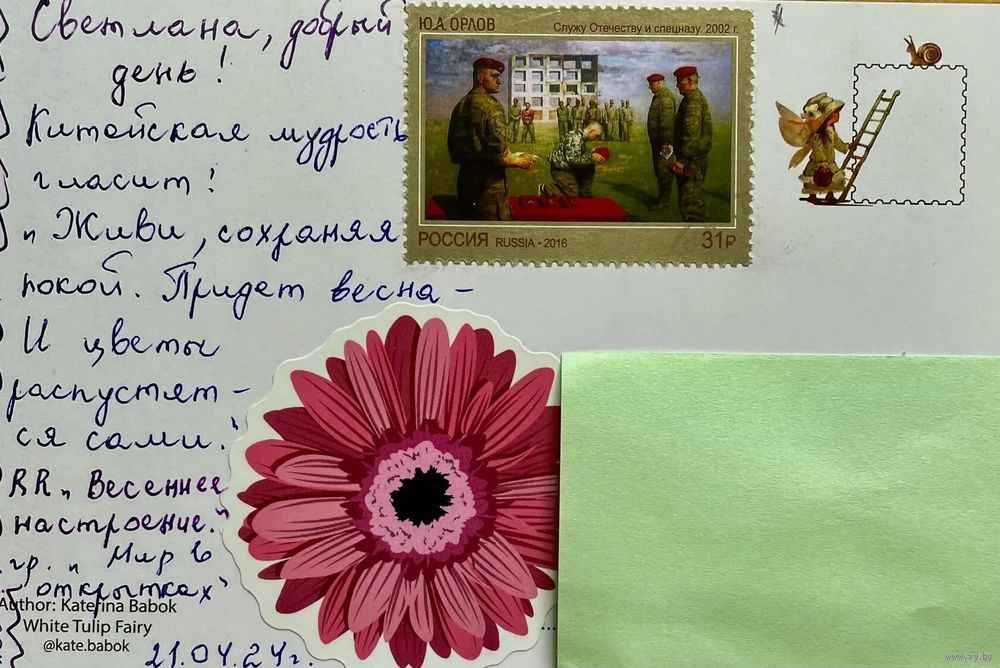 Светлана, добрый
день!
Китайская мудрость
гласит:
„Живи, сохраняя
покой. Придет весна –
И цветы
распустят –
ся сами."
RR „Весеннее
настроение."
гр. „Мир в
открытках"
Author: Katerina Babok
White Tulip Fairy
@kate.babok
21.04.24г.
Ю.А. ОРЛОВ
Служу Отечеству и спецназу. 2002 г.
РОССИЯ RUSSIA • 2016
31₽
www.ay.by